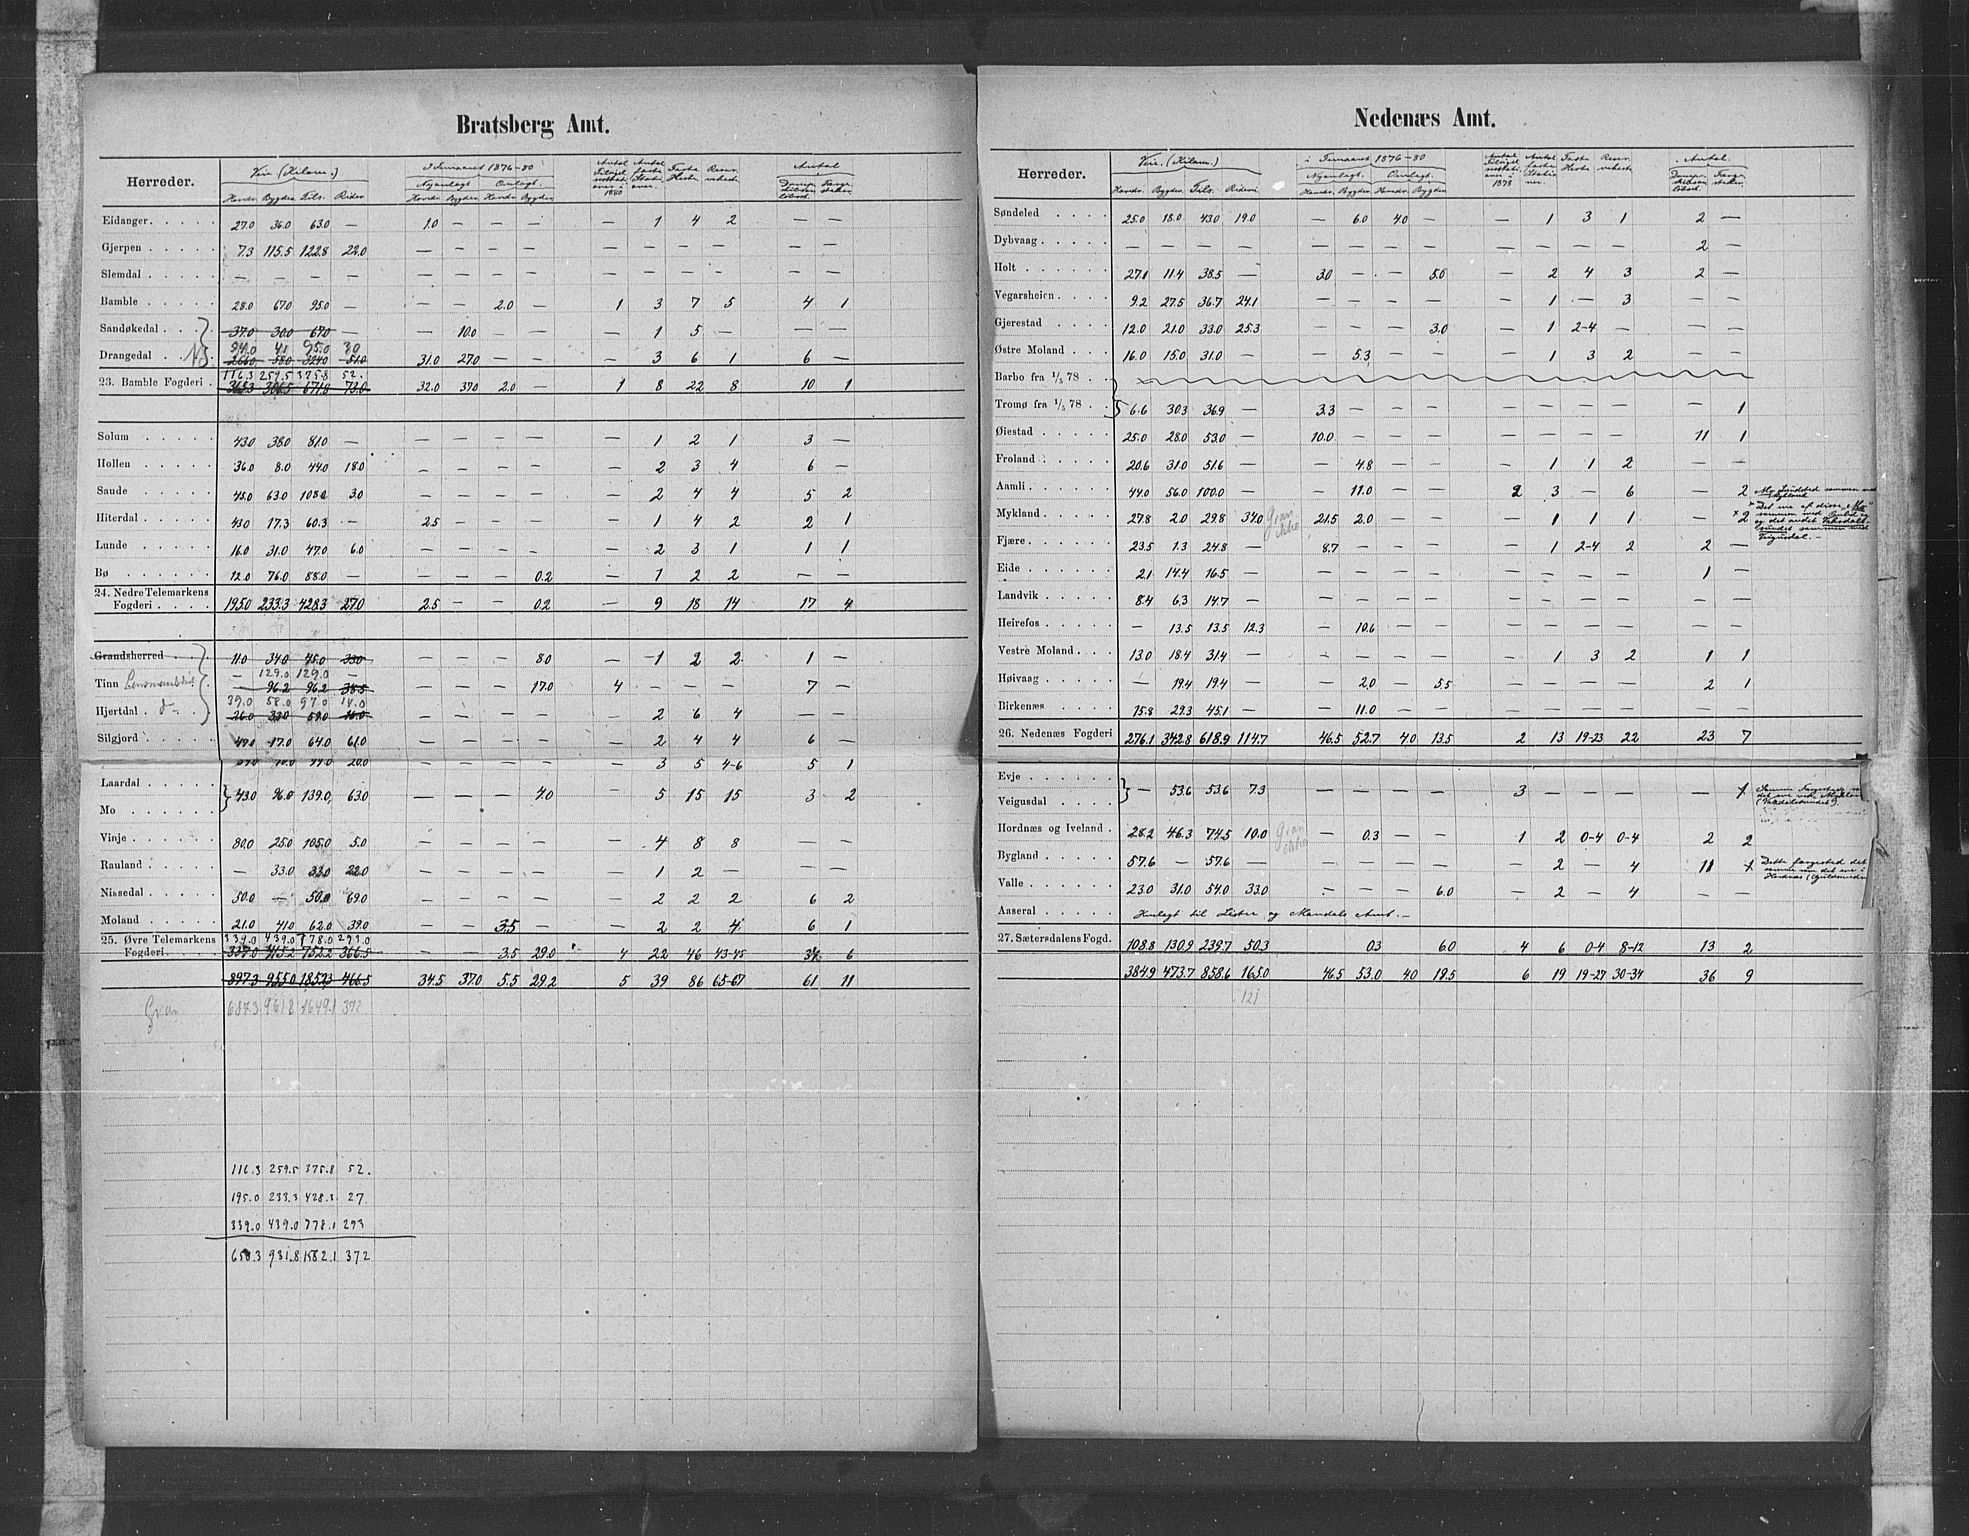 Bratsberg Amt.
Herreder. Veie (Kilom.) I Femaaret 1876-80 Antal
Nyanlagt. Omlagt.
Hovedv. Bygdev. Tils. Ridev. Hovedv. Bygdev. Hovedv. Bygdev. 1880
Eidanger. 27.0 36.0 63.0 — 1.0 — — — — 1 4 2 — —
Gjerpen 7.3 115.5 122.8 22.0 — — — — — — — — — —
Slemdal — — — — — — — — — — — — — —
Bamble 28.0 67.0 95.0 — — — 2.0 — 1 3 7 5 4 1
Sandøkedal 37.0 30.0 67.0 — — 10.0 — — — 1 5 — — —
54.0 41 95.0 30
Drangedal NB 266.0 58.0 324.0 51.0 31.0 27.0 — — — 3 6 1 6 —
116.3 259.5 375.8 52.
23. Bamble Fogderi 365.3 306.5 671.8 73.0 32.0 37.0 2.0 — 1 8 22 8 10 1
Solum 43.0 38.0 81.0 — — — — — — 1 2 1 3 —
Hollen 36.0 8.0 44.0 18.0 — — — — — 2 3 4 6 —
Saude 45.0 63.0 108.0 3.0 — — — — — 2 4 4 5 2
Hiterdal 43.0 17.3 60.3 — 2.5 — — — — 1 4 2 2 1
Lunde 16.0 31.0 47.0 6.0 — — — — — 2 3 1 1 1
Bø 12.0 76.0 88.0 — — — — 0.2 — 1 2 2 — —
24. Nedre Telemarkens
Fogderi 195.0 233.3 428.3 27.0 2.5 — — 0.2 — 9 18 14 17 4
Grandsherred 11.0 34.0 45.0 33.0 — — — 8.0 — 1 2 2 1 —
— 129.0 129.0 —
Tinn — 96.2 96.2 38.5 — — — 17.0 4 — — — 7 —
39.0 58.0 97.0 14.0
Hjertdal 26.0 33.0 59.0 16.0 — — — — — 2 6 4 — —
Silgjord 47.0 17.0 64.0 61.0 — — — — — 2 4 4 6 —
20.0 — — — — — 3 5 4-6 5 1
Laardal } 43.0 96.0 139.0 63.0 — — — 4.0 — 5 15 15 3 2
Mo
Vinje 80.0 25.0 105.0 5.0 — — — — — 4 8 8 — —
Rauland — 33.0 33.0 22.0 — — — — — 1 2 — — —
Nissedal 50.0 — 50.0 69.0 — — — — — 2 2 2 6 2
Moland 21.0 41.0 62.0 39.0 — — 3.5 — — 2 2 4 6 1
339.0 439.0 778.0 293.0
25. Øvre Telemarkens
Fogderi 337.0 415.2 752.2 366.5 — — 3.5 29.0 4 22 46 43-45 34 6
897.3 955.0 1852.3 466.5 34.5 37.0 5.5 29.2 5 39 86 65-67 61 11
687.3 961.8 1649.1 372
116.3 259.5 375.8 52.
195.0 233.3 428.3 27
339.0 439.0 778.1 293
650.3 931.8 1582.1 372
Nedenæs Amt.
Herreder. Veie. (Kilom.) i Femaaret 1876-80 Antal
Nyanlagt. Omlagt.
Hovedv. Bygdev. Tils. Ridevei Hovedv. Bygdev. Hovedv. Bygdev. 1878
Søndeled 25.0 18.0 43.0 19.0 — 6.0 4.0 — — 1 3 1 2 —
Dybvaag — — — — — — — — — — — — 2 —
Holt 27.1 11.4 38.5 — 3.0 — — 5.0 — 2 4 3 2 —
Vegarsheien 9.2 27.5 36.7 24.1 — — — — — 1 — 3 — —
Gjerestad 12.0 21.0 33.0 25.3 — — — 3.0 — 1 2-4 — — —
Østre Moland 16.0 15.0 31.0 — — 5.3 — — — 1 3 2 — —
Barbo fra 1/5 78
Tromø fra 1/5 78 6.6 30.3 36.9 — 3.3 — — — — — — — — 1
Øiestad 25.0 28.0 53.0 — 10.0 — — — — — — — 11 1
Froland 20.6 31.0 51.6 — — 4.8 — — — 1 1 2 — —
Aamli 44.0 56.0 100.0 — — 11.0 — — 2 3 — 6 — 2
Mykland 27.8 2.0 29.8 34.0 21.5 2.0 — — — 1 1 1 — × 2
Fjære 23.5 1.3 24.8 — 8.7 — — — — 1 2-4 2 2 —
Eide 2.1 14.4 16.5 — — — — — — — — — 1 —
Landvik 8.4 6.3 14.7 — — — — — — — — — — —
Heirefos — 13.5 13.5 12.3 — 10.6 — — — — — — — —
Vestre Moland 13.0 18.4 31.4 — — — — — — 1 3 2 1 1
Høivaag — 19.4 19.4 — — 2.0 — 5.5 — — — — 2 1
Birkenæs 15.8 29.3 45.1 — — 11.0 — — — — — — — —
26. Nedenæs Fogderi 276.1 342.8 618.9 114.7 46.5 52.7 4.0 13.5 2 13 19-23 22 23 7
Evje } — 53.6 53.6 7.3 — — — — 3 — — — — 1
Veigusdal
Hordnæs og Iveland 28.2 46.3 74.5 10.0 — 0.3 — — 1 2 0-4 0-4 2 2
Bygland 57.6 — 57.6 — — — — — 2 — 4 11 1 Dette færgested det
samme som det ene i
Hordnæs
Valle 23.0 31.0 54.0 33.0 — — — 6.0 — 2 — 4 — —
Aaseral Henlagt til Lister og Mandals Amt. —
27. Sætersdalens Fogd. 108.8 130.9 239.7 50.3 0.3 6.0 4 6 0-4 8-12 13 2
384.9 473.7 858.6 165.0 46.5 53.0 4.0 19.5 6 19 19-27 30-34 36 9
121